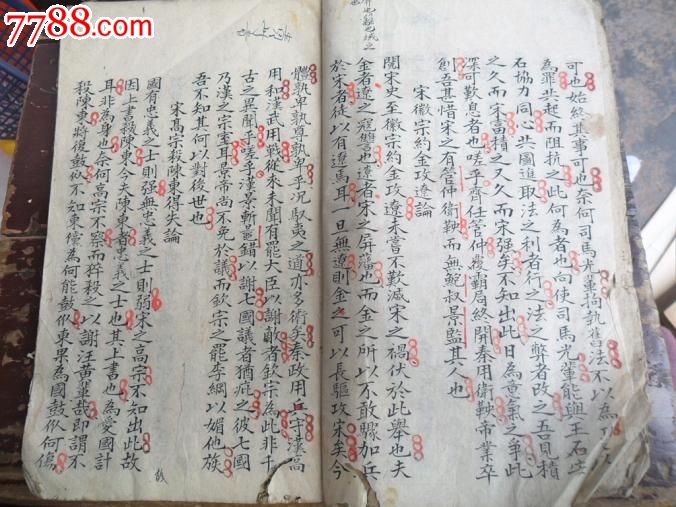 7788.com
可也始終其事可也奈何司馬光輩拘執舊法不以為功反
為罪共起而阻抗之此何為者也向使司馬光輩能與王石
石協力同心共圖進取法之利者行之法之弊者改之吾見積
之久而宋富積之又久而宋强矣不知出此日為意氣之爭此
深可歎息者也嗟乎齊任管仲後霸局終開秦用衛鞅帝業卒
創吾甚惜宋之有管仲衛鞅而無鮑叔景監其人也
宋徽宗約金攻遼論
閱宋史至徽宗約金攻遼未嘗不歎滅宋之禍伏於此舉也夫
金者遼之寇讐也遼者宋之屏藩也而金之所以不敢驟加兵
於宋者徒以有遼焉耳一旦無遼則金之可以長驅攻宋矣今
體執卑執尊執卑乎况馭夷之道亦多術矣秦政用兵守漢高
用和漢武用戰從來未聞有罷大臣以謝敵者欽宗為此非千
古之異聞乎嗟乎漢景斬鼂錯以謝七國議者猶疵之彼七國
乃漢之宗室耳景帝尚不免於議而欽宗之罷李綱以媚他族
吾不知其何以對後世也
宋高宗殺陳東得失論
國有忠義之士則强無忠義之士則弱宋之高宗不知出此故
因上書殺陳東今夫陳東者忠義之士也其上書也為愛國計
耳非為身也奈何高宗不察而猝殺之以謝汪黄輩哉即謂不
殺陳東將復鼓似不知東儻為何能鼓似東果為國鼓似何傷